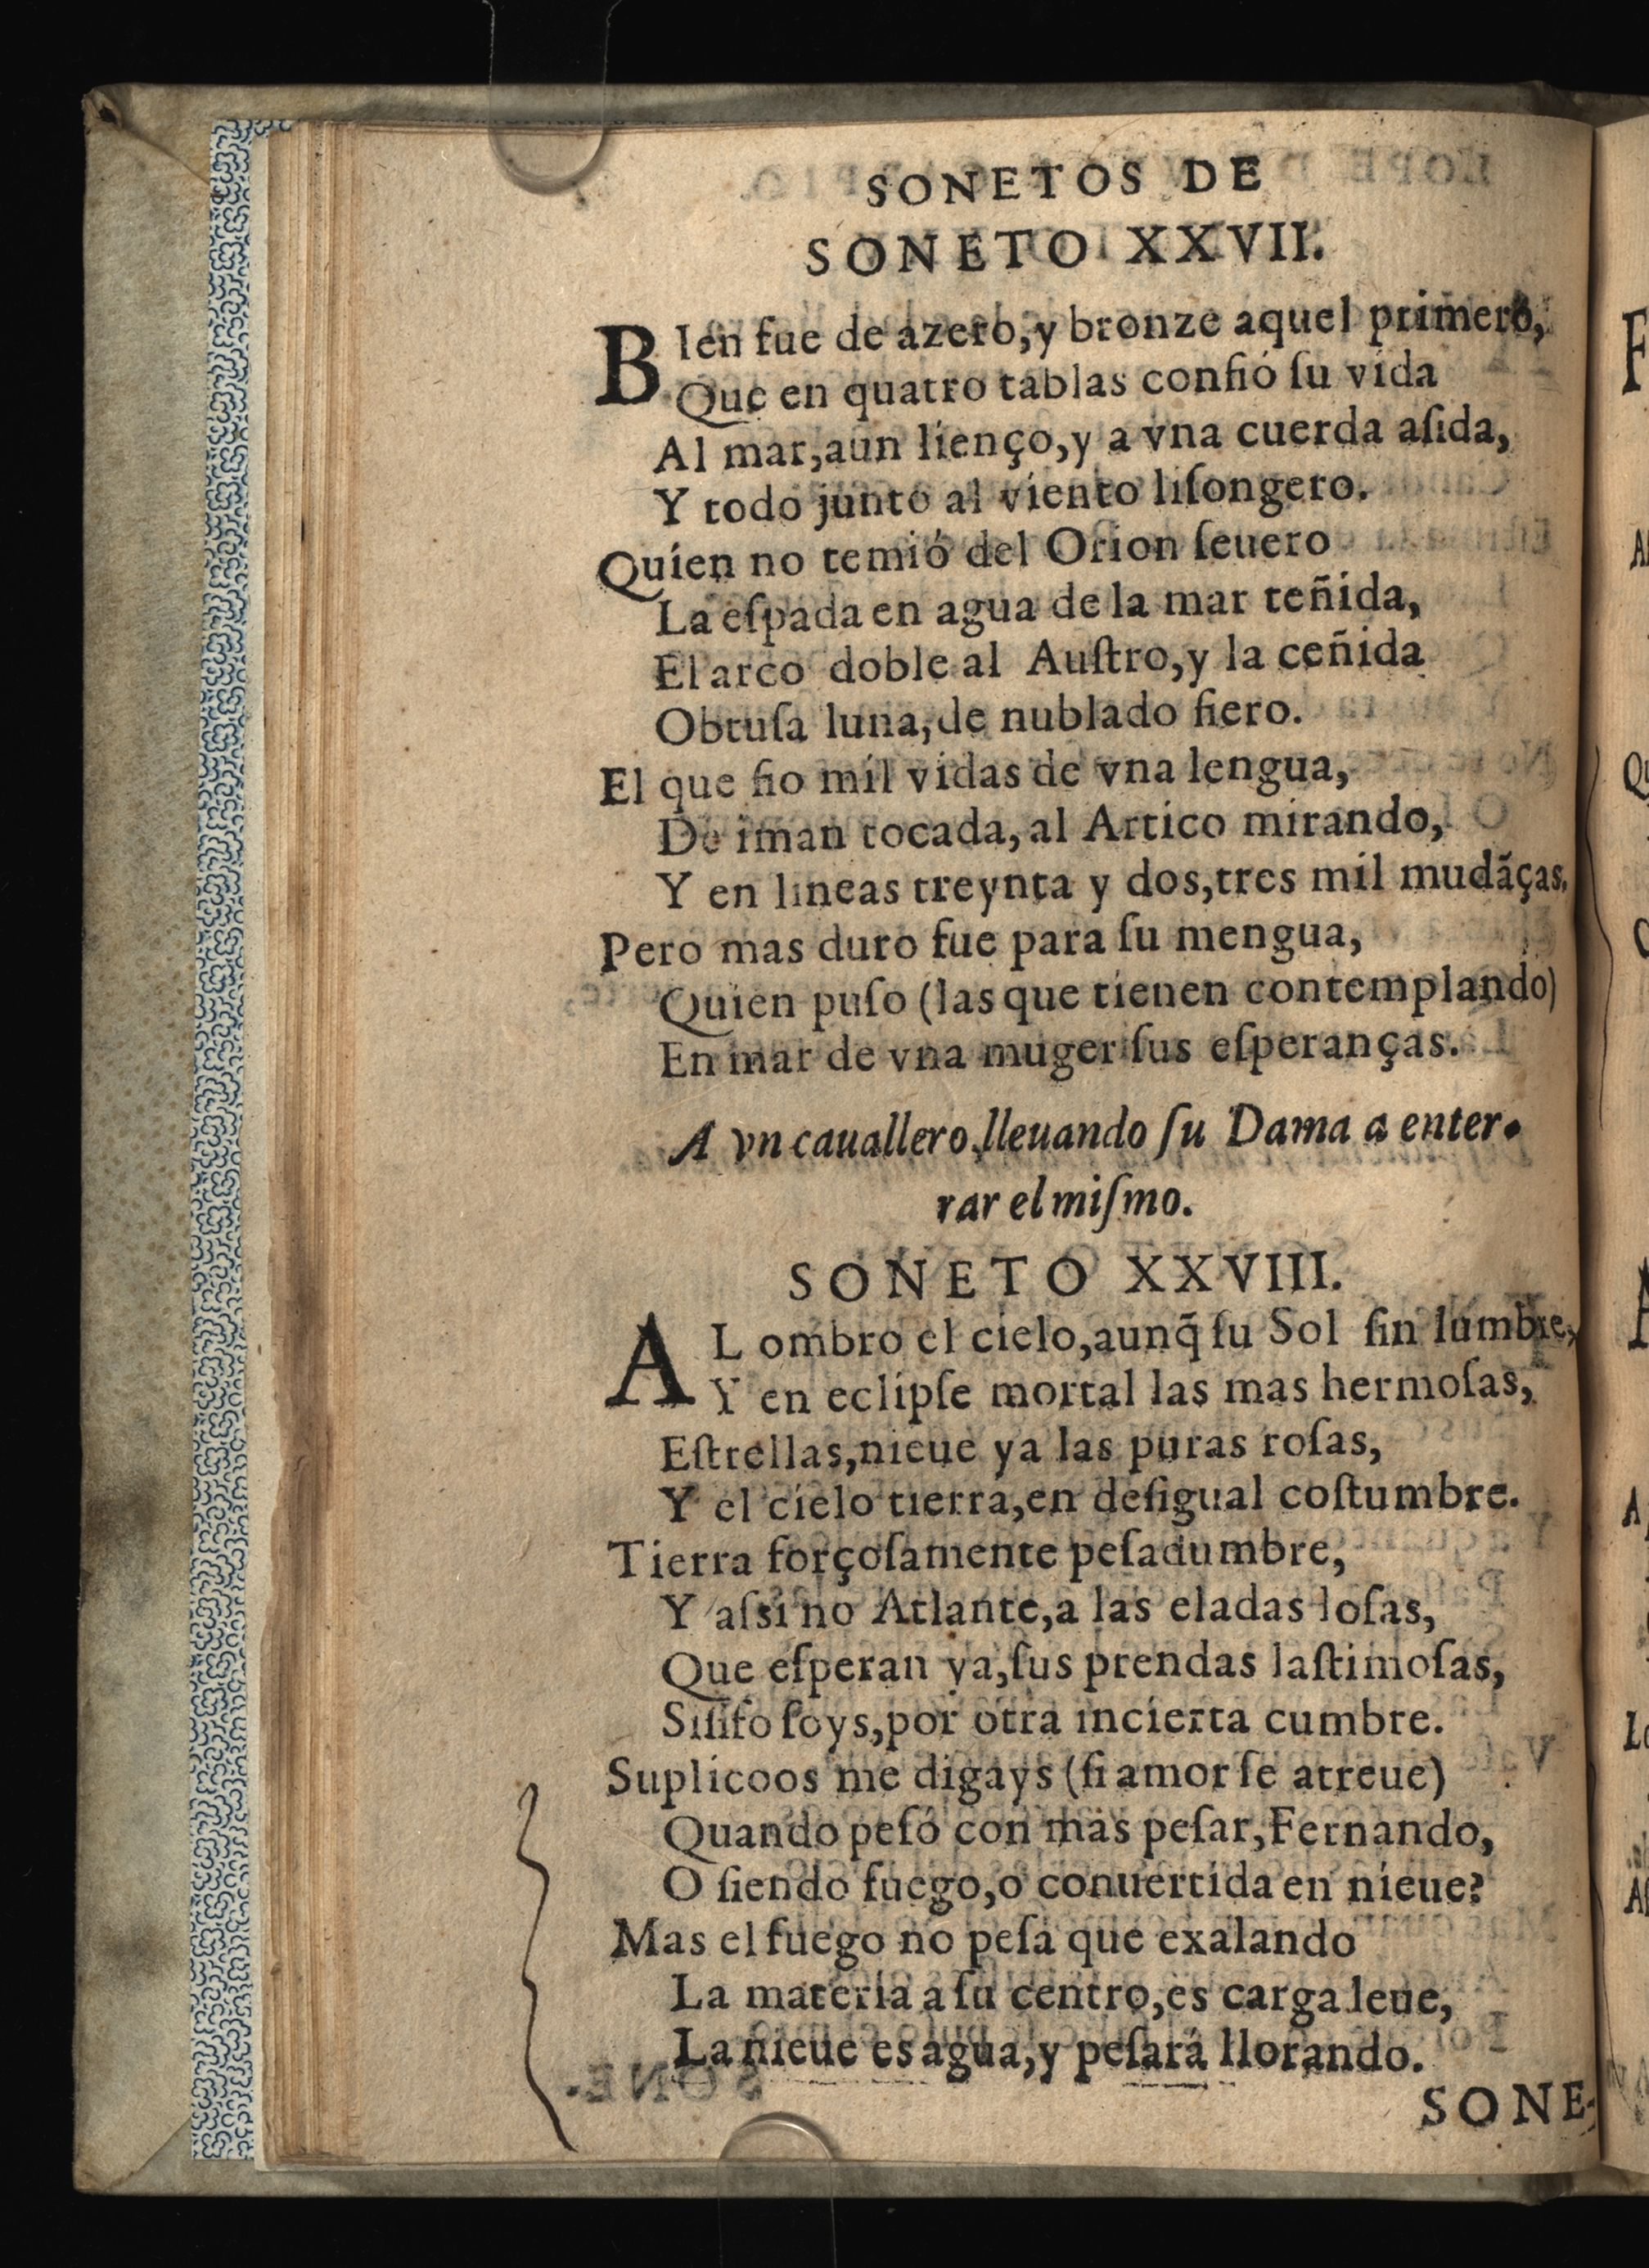 SONETOS DE
SONETO XXVII.
BIen fue de azero,y bronze aquel primero,
Que en quatro tablas confió ſu vida
Al mar,aun lienço,y a vna cuerda aſida,
Y todo junto al viento liſongero.
Quien no temió del Orion ſeuero
La eſpada en agua de la mar teñida,
El arco doble al Auſtro,y la ceñida
Obtuſa luna,de nublado fiero.
El que fio mil vidas de vna lengua,
De iman tocada,al Artico mirando,
Y en lineas treynta y dos,tres mil mudãças.
Pero mas duro fue para ſu mengua,
Quien puſo (las que tienen contemplando)
En mar de vna muger ſus eſperanças.
A vn cauallero,lleuando ſu Dama a enter-
rar el miſmo.
SONETO XXVIII.
AL ombro el cielo,aunq̃ ſu Sol ſin lumbre,
Y en eclipſe mortal las mas hermoſas,
Eſtrellas,nieue ya las puras roſas,
Y el cielo tierra,en deſigual coſtumbre.
Tierra forçoſamente peſadumbre,
Y aſsi no Atlante,a las eladas loſas,
Que eſperan ya,ſus prendas laſtimoſas,
Siſifo ſoys,por otra incierta cumbre.
Suplicoos me digays (ſi amor ſe atreue)
Quando peſó con mas peſar,Fernando,
O ſiendo fuego,o conuertida en nieue?
Mas el fuego no peſa que exalando
La materia a ſu centro,es carga leue,
La nieue es agua,y peſará llorando.
SONE-